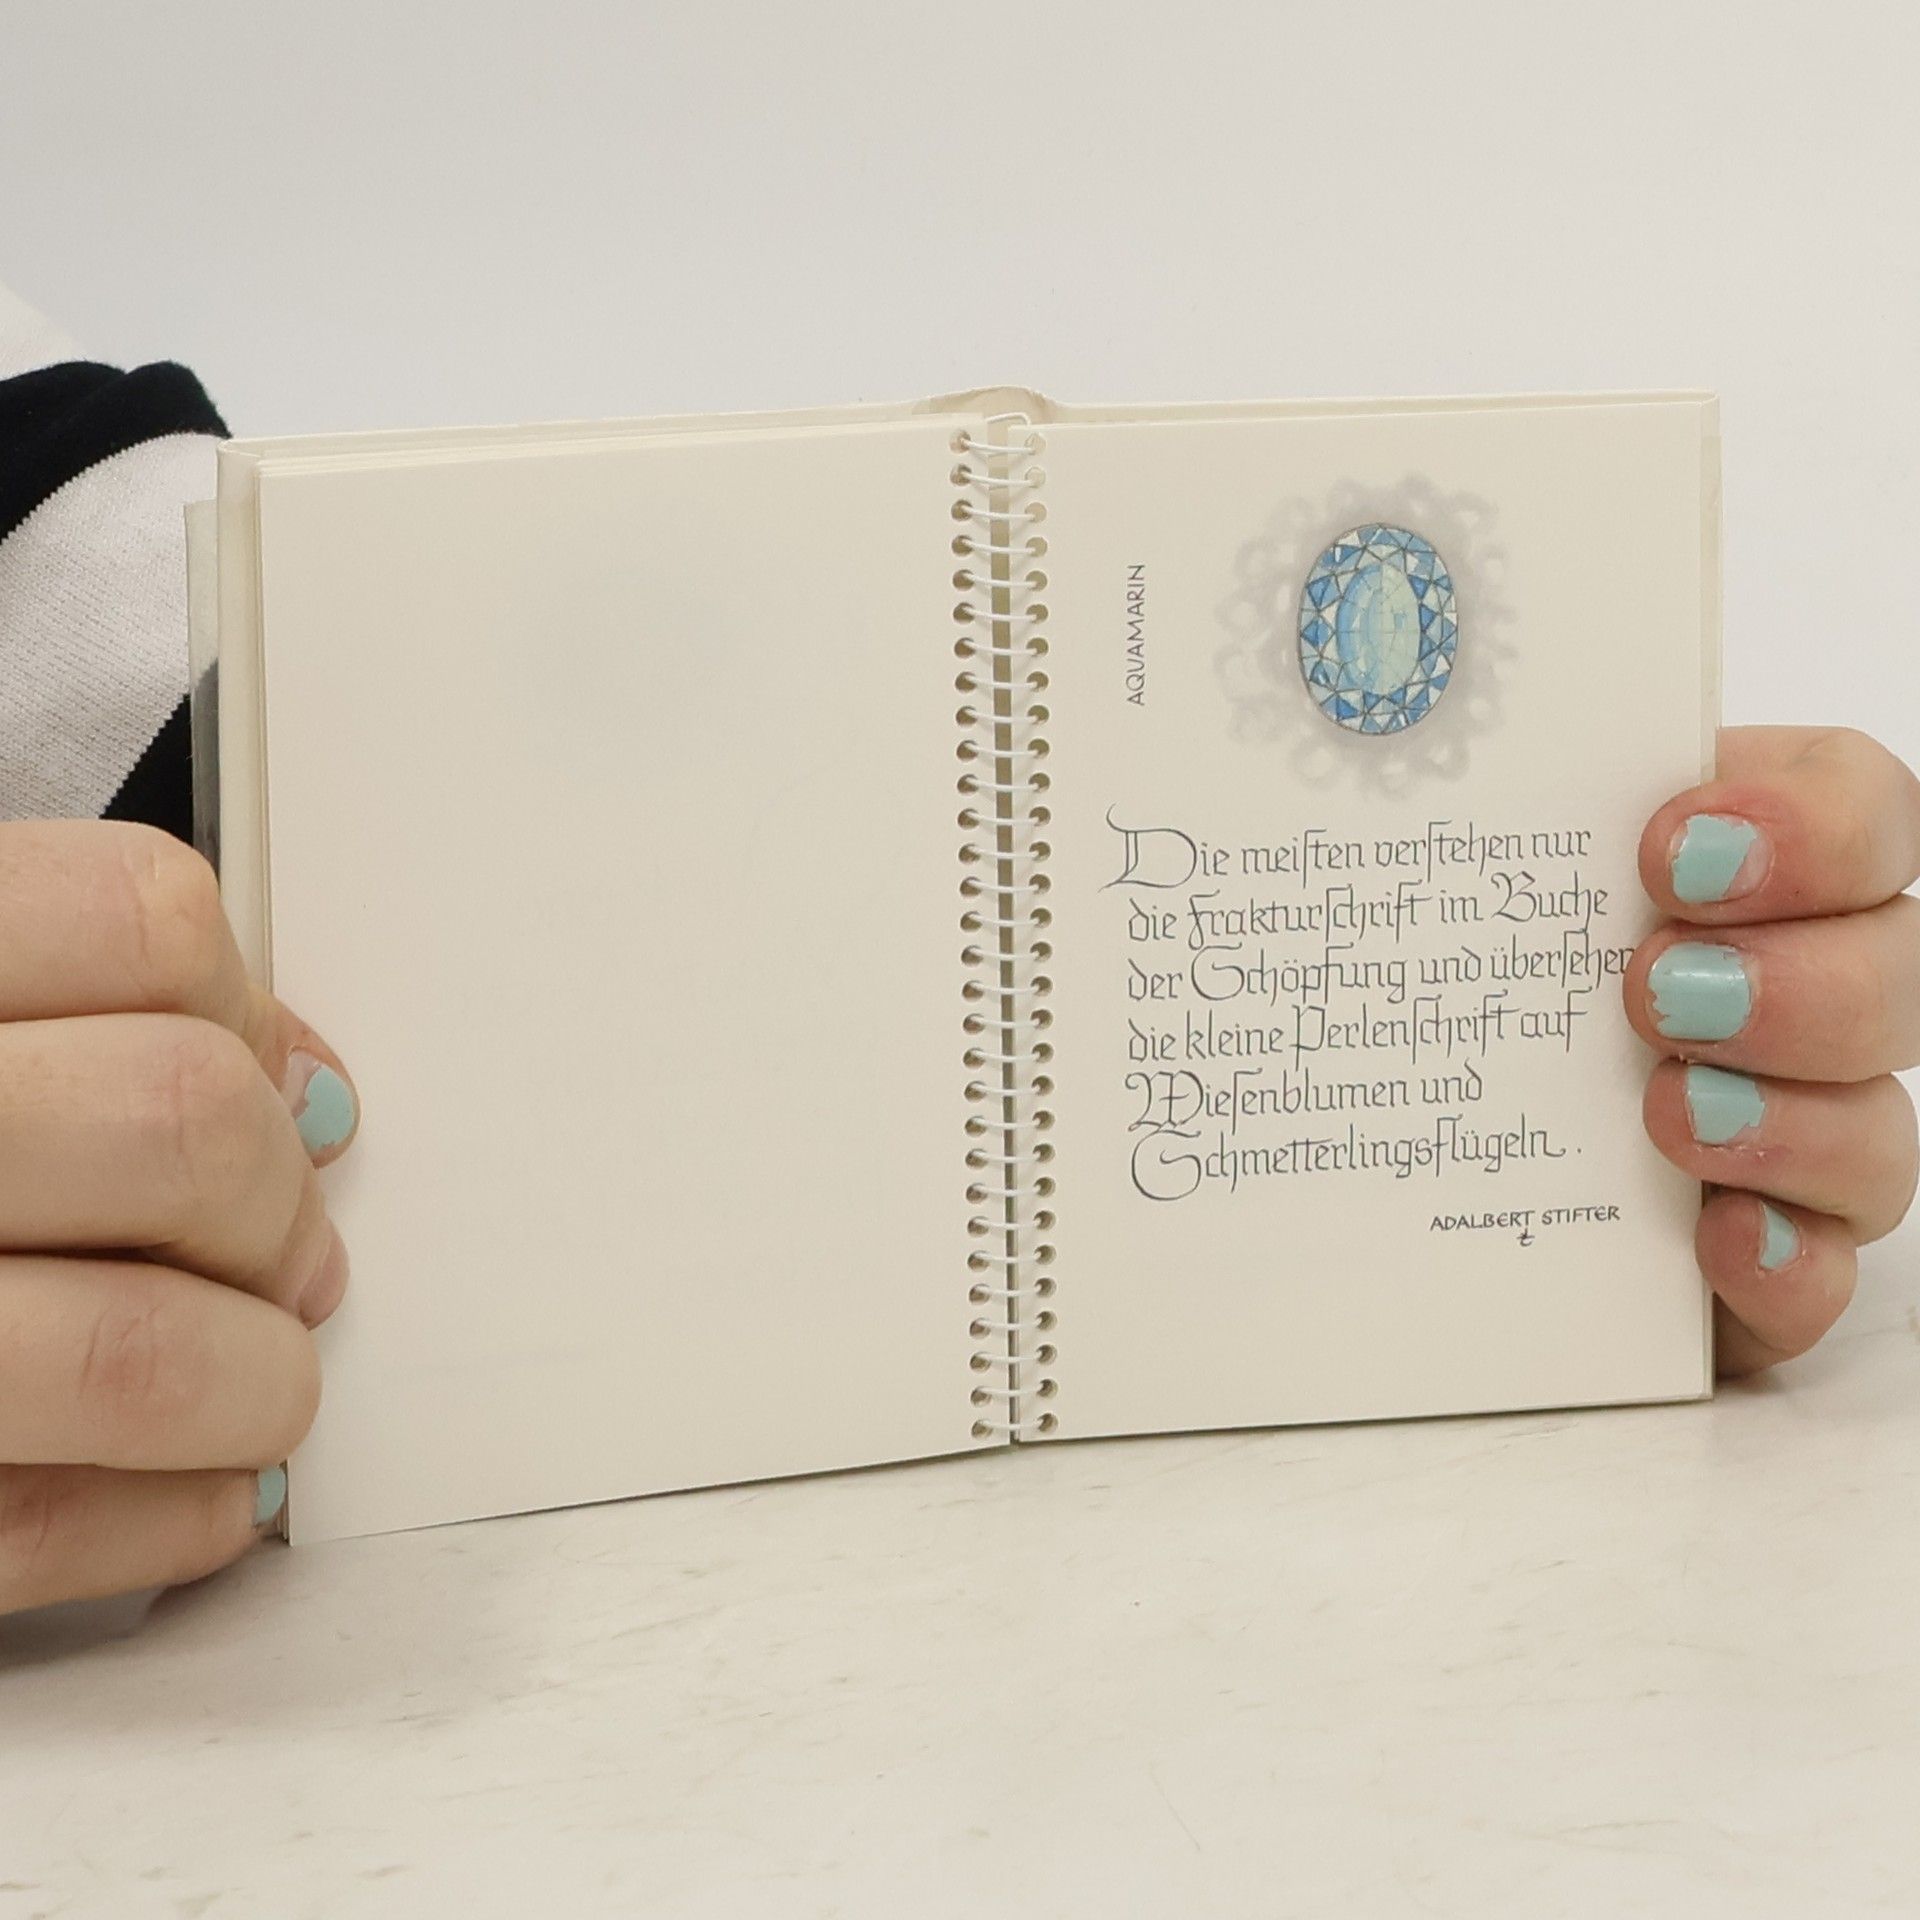 AQUAMARIN
Die meiſten verſtehen nur
die Frakturſchrift im Buche
der Schöpfung und überſehen
die kleine Perlenſchrift auf
Wieſenblumen und
Schmetterlingsflügeln.
ADALBERT STIFTER